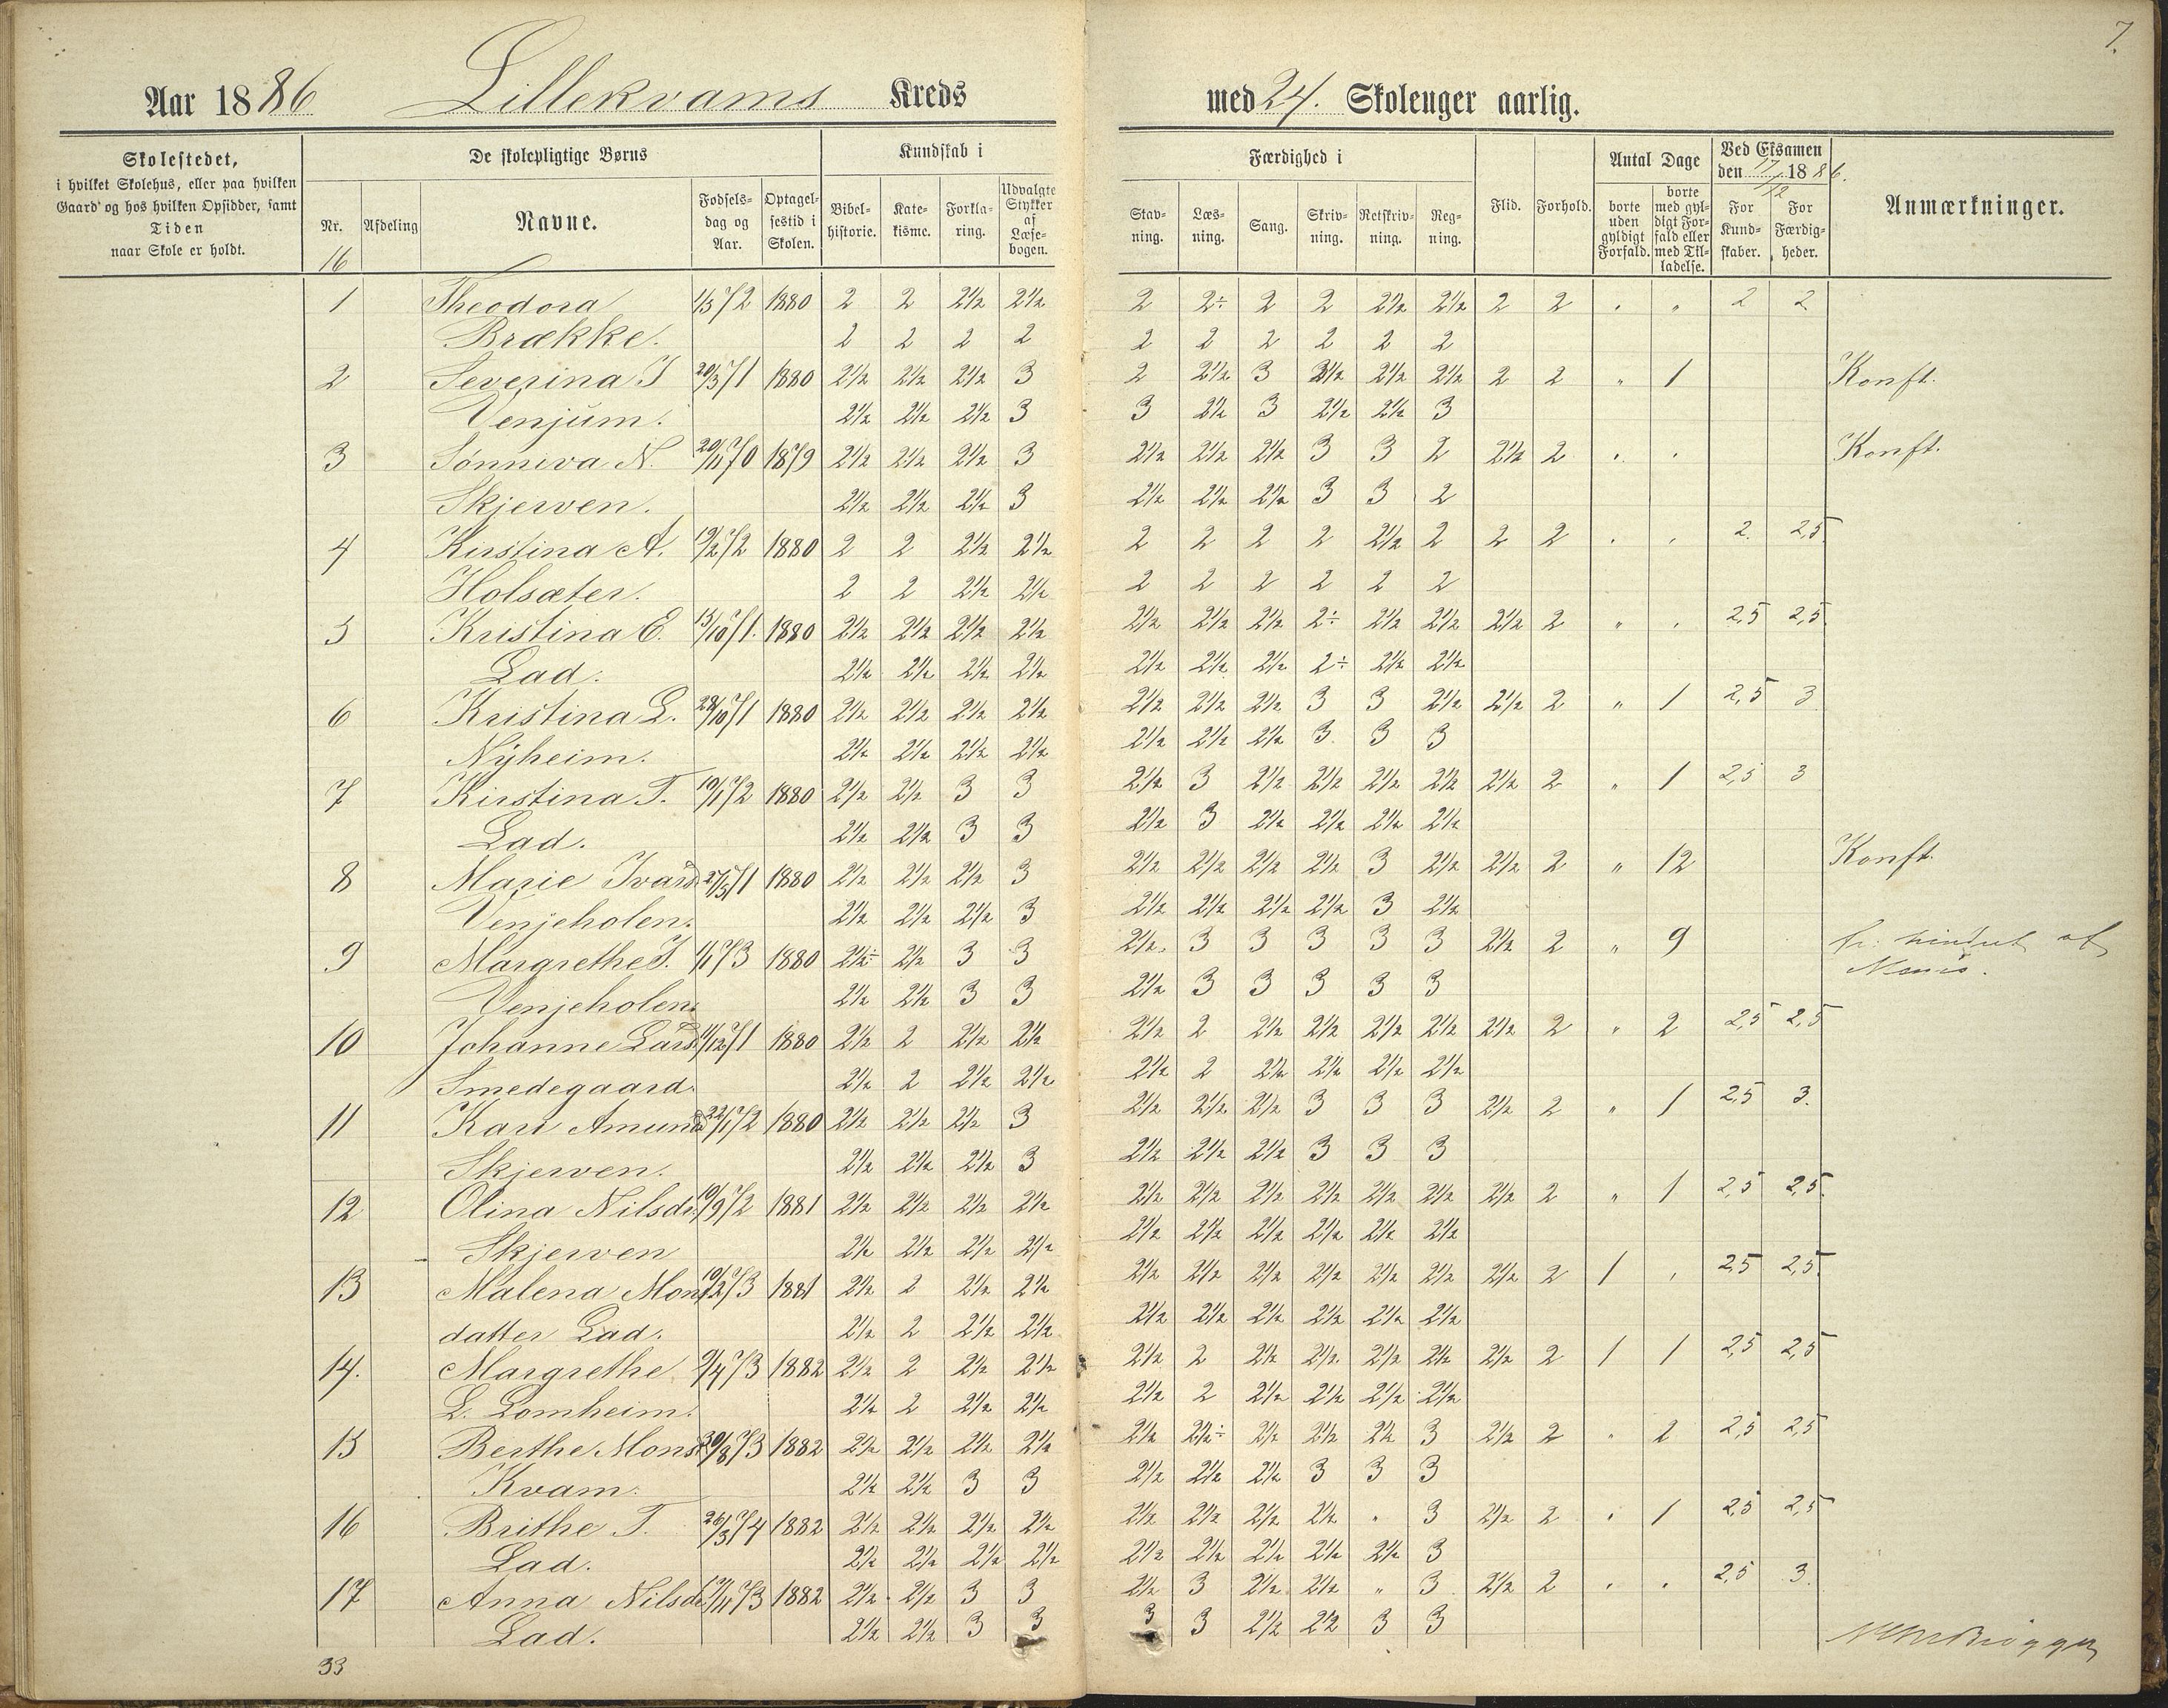 7.
Aar 1886 Lillekvams Kreds med 24. Skoleuger aarlig.
Skolestedet, i hvilket Skolehus, eller paa hvilken Gaard og hos hvilken Opsidder, samt Tiden naar Skole er holdt.
De skolepligtige Børns
Nr. Afdeling Navne. Fødsels-dag og Aar. Optagel-sestid i Skolen.
16
Kundskab i
Bibel-historie. Kate-kisme. Forkla-ring. Udvalgte Stykker af Læse-bogen.
Færdighed i
Stav-ning. Læs-ning. Sang. Skriv-ning. Retskriv-ning. Reg-ning.
Flid. Forhold.
Antal Dage
borte uden gyldigt Forfald. borte med gyl-digt For-fald eller med Til-ladelse.
Ved Eksamen den 17/12 1886.
For Kund-skaber. For Færdig-heder.
Anmærkninger.
1 Theodora 1/5 72 1880 2 2 2½ 2½ 2 2÷ 2 2 2½ 2½ 2 2 . „ 2 2
Brække. 2 2 2 2 2 2 2 2 2 2
2 Severina I 20/3 71 1880 2½ 2½ 2½ 3 2 2½ 3 2½ 2½ 2½ 2 2 „ 1 Konft.
Venjum. 2½ 2½ 2½ 3 3 2½ 3 2½ 2½ 3
3 Sønneva N. 20/11 70 1879 2½ 2½ 2½ 3 2½ 2½ 2½ 3 3 2 2½ 2 . . Konft.
Skjerven. 2½ 2½ 2½ 3 2½ 2½ 2½ 3 3 2
4 Kirstina A. 19/2 72 1880 2 2 2½ 2½ 2 2 2 2 2½ 2 2 2 . . 2. 2,5
Holsæter. 2 2 2½ 2½ 2 2 2 2 2 2
5 Kristina E. 13/10 71. 1880 2½ 2½ 2½ 2½ 2½ 2½ 2½ 2÷ 2½ 2½ 2½ 2 „ . 2,5 2,5
Lad. 2½ 2½ 2½ 2½ 2½ 2½ 2½ 2÷ 2½ 2½
6 Kristina L. 28/10 71 1880 2½ 2½ 2½ 2½ 2½ 2½ 2½ 3 3 2½ 2½ 2 „ 1 2,5 3
Nyheim. 2½ 2½ 2½ 2½ 2½ 2½ 2½ 3 3 3
7 Kirstina T. 10/1 72 1880 2½ 2½ 3 3 2½ 3 2½ 2½ 2½ 2½ 2½ 2 „ 1 2,5 3
Lad. 2½ 2½ 3 3 2½ 3 2½ 2½ 2½ 2½
8 Marie Ivarsd. 27/5 71 1880 2½ 2½ 2½ 3 2½ 2½ 2½ 2½ 3 2½ 2½ 2 „ 12 Konft.
Venjeholen. 2½ 2½ 2½ 3 2½ 2½ 2½ 2½ 3 2½
9 Margrethe I. 1/1 73 1880 2½÷ 2½ 3 3 2½ 3 3 3 3 3 2½ 2 „ 9 fr. hindret af
Venjeholen. 2½ 2½ 3 3 2½ 3 3 3 3 3
10 Johanne Larsd. 11/12 71 1880 2½ 2 2½ 2½ 2½ 2 2½ 2½ 2½ 2½ 2½ 2 „ 2 2,5 2,5
Smedegaard. 2½ 2 2½ 2½ 2½ 2 2½ 2½ 2½ 2½
11 Kari Amundsd. 22/1 72 1880 2½ 2½ 2½ 3 2½ 2½ 2½ 3 3 3 2½ 2 „ 1 2,5 3.
Skjerven. 2½ 2½ 2½ 3 2½ 2½ 2½ 3 3 3
12 Olina Nilsdr. 10/9 72 1881 2½ 2½ 2½ 2½ 2½ 2½ 2½ 2½ 2½ 2½ 2½ 2 „ 1 2,5 2,5
Skjerven 2½ 2½ 2½ 2½ 2½ 2½ 2½ 2½ 2½ 2½
13 Malena Mons 10/2 73 1881 2½ 2 2½ 2½ 2½ 2½ 2½ 2½ 2½ 2½ 2½ 2 1 . 2,5 2,5
datter Lad. 2½ 2 2½ 2½ 2½ 2½ 2½ 2½ 2½ 2½
14. Margrethe 9/4 73 1882 2½ 2 2½ 2½ 2½ 2 2½ 2½ 2½ 2½ 2½ 2 1 1 2,5 2,5
L. Lomheim. 2½ 2 2½ 2½ 2½ 2 2½ 2½ 2½ 2½
15 Berthe Monsd. 30/8 73 1882 2½ 2½ 2½ 2½ 2½ 2½÷ 2½ 2½ 2½ 3 2½ 2 . 2 2,5 2,5
Kvam. 2½ 2½ 3 3 2½ 2½ 2½ 3 3 3
16 Brithe T. 26/3 74 1882 2½ 2½ 2½ 2½ 2½ 2½ 2½ 2½ „ 3 2½ 2 . 1 2,5 2,5
Lad. 2½ 2½ 2½ 2½ 2½ 2½ 2½ 2½ 2½ 3
17 Anna Nilsdr. 17/11 73 1882 2½ 2½ 3 3 2½ 3 2½ 2½ „ 3 2½ 2 . . 2,5 3
Lad. 2½ 2½ 3 3 3 3 2½ 2½ 3 3
33